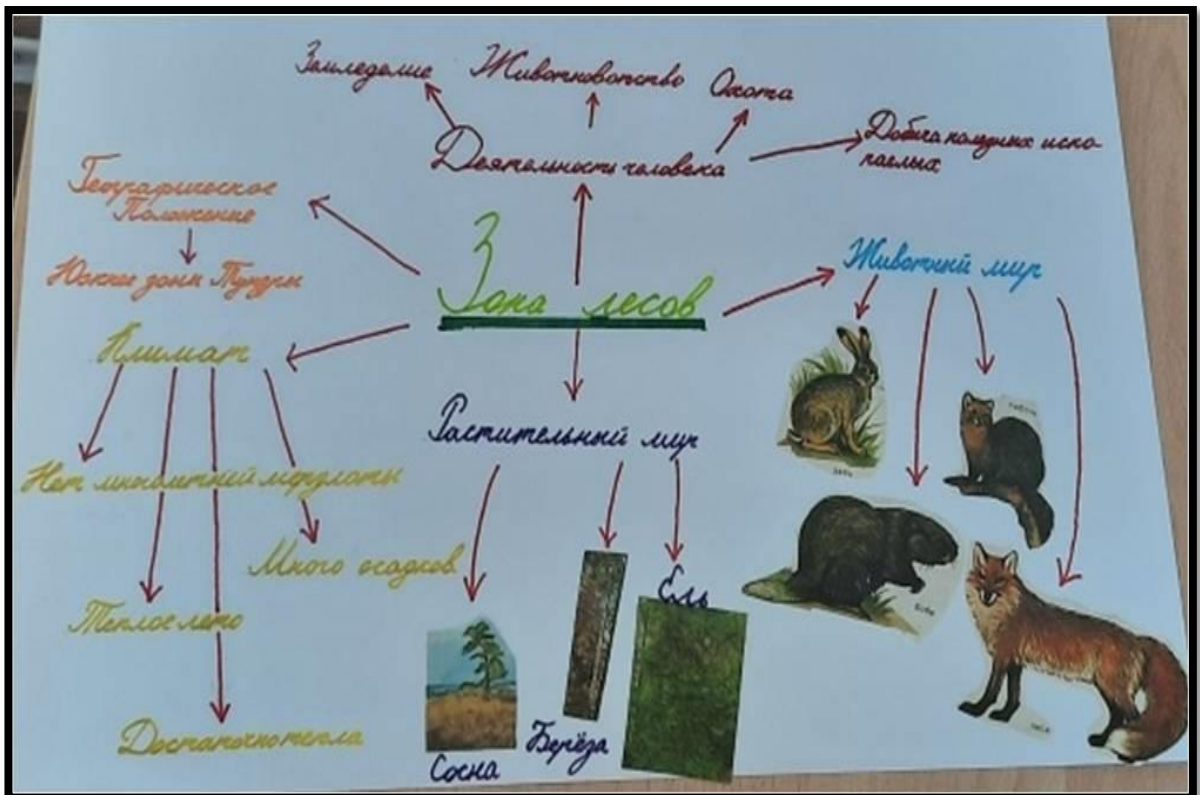 Земледелие Животноводство Охота
Деятельность человека
Добыча полезных иско-
паемых
Географическое
Положение
Южнее зоны Тундры
Зона лесов
Животный мир
Климат
Растительный мир
Нет многолетней мерзлоты
Много осадков
Теплое лето
Достаточно тепла
Сосна
Берёза
Ель
заяц
соболь
бобр
лиса